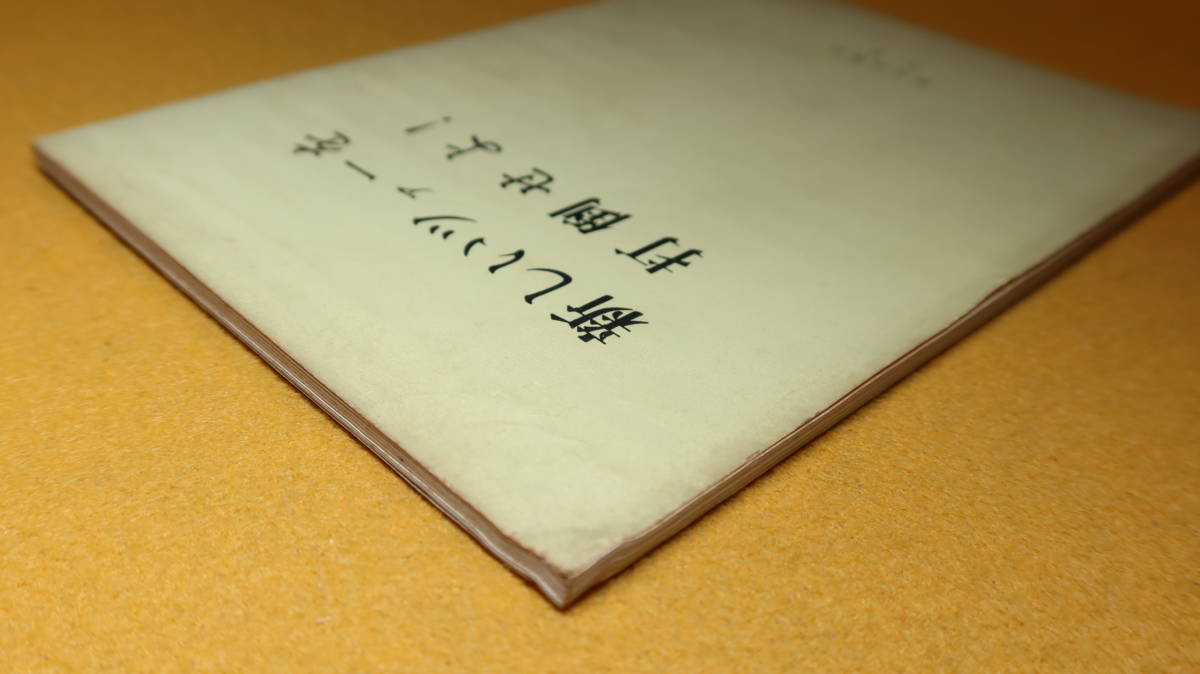 新しいツァーを
打倒せよ！